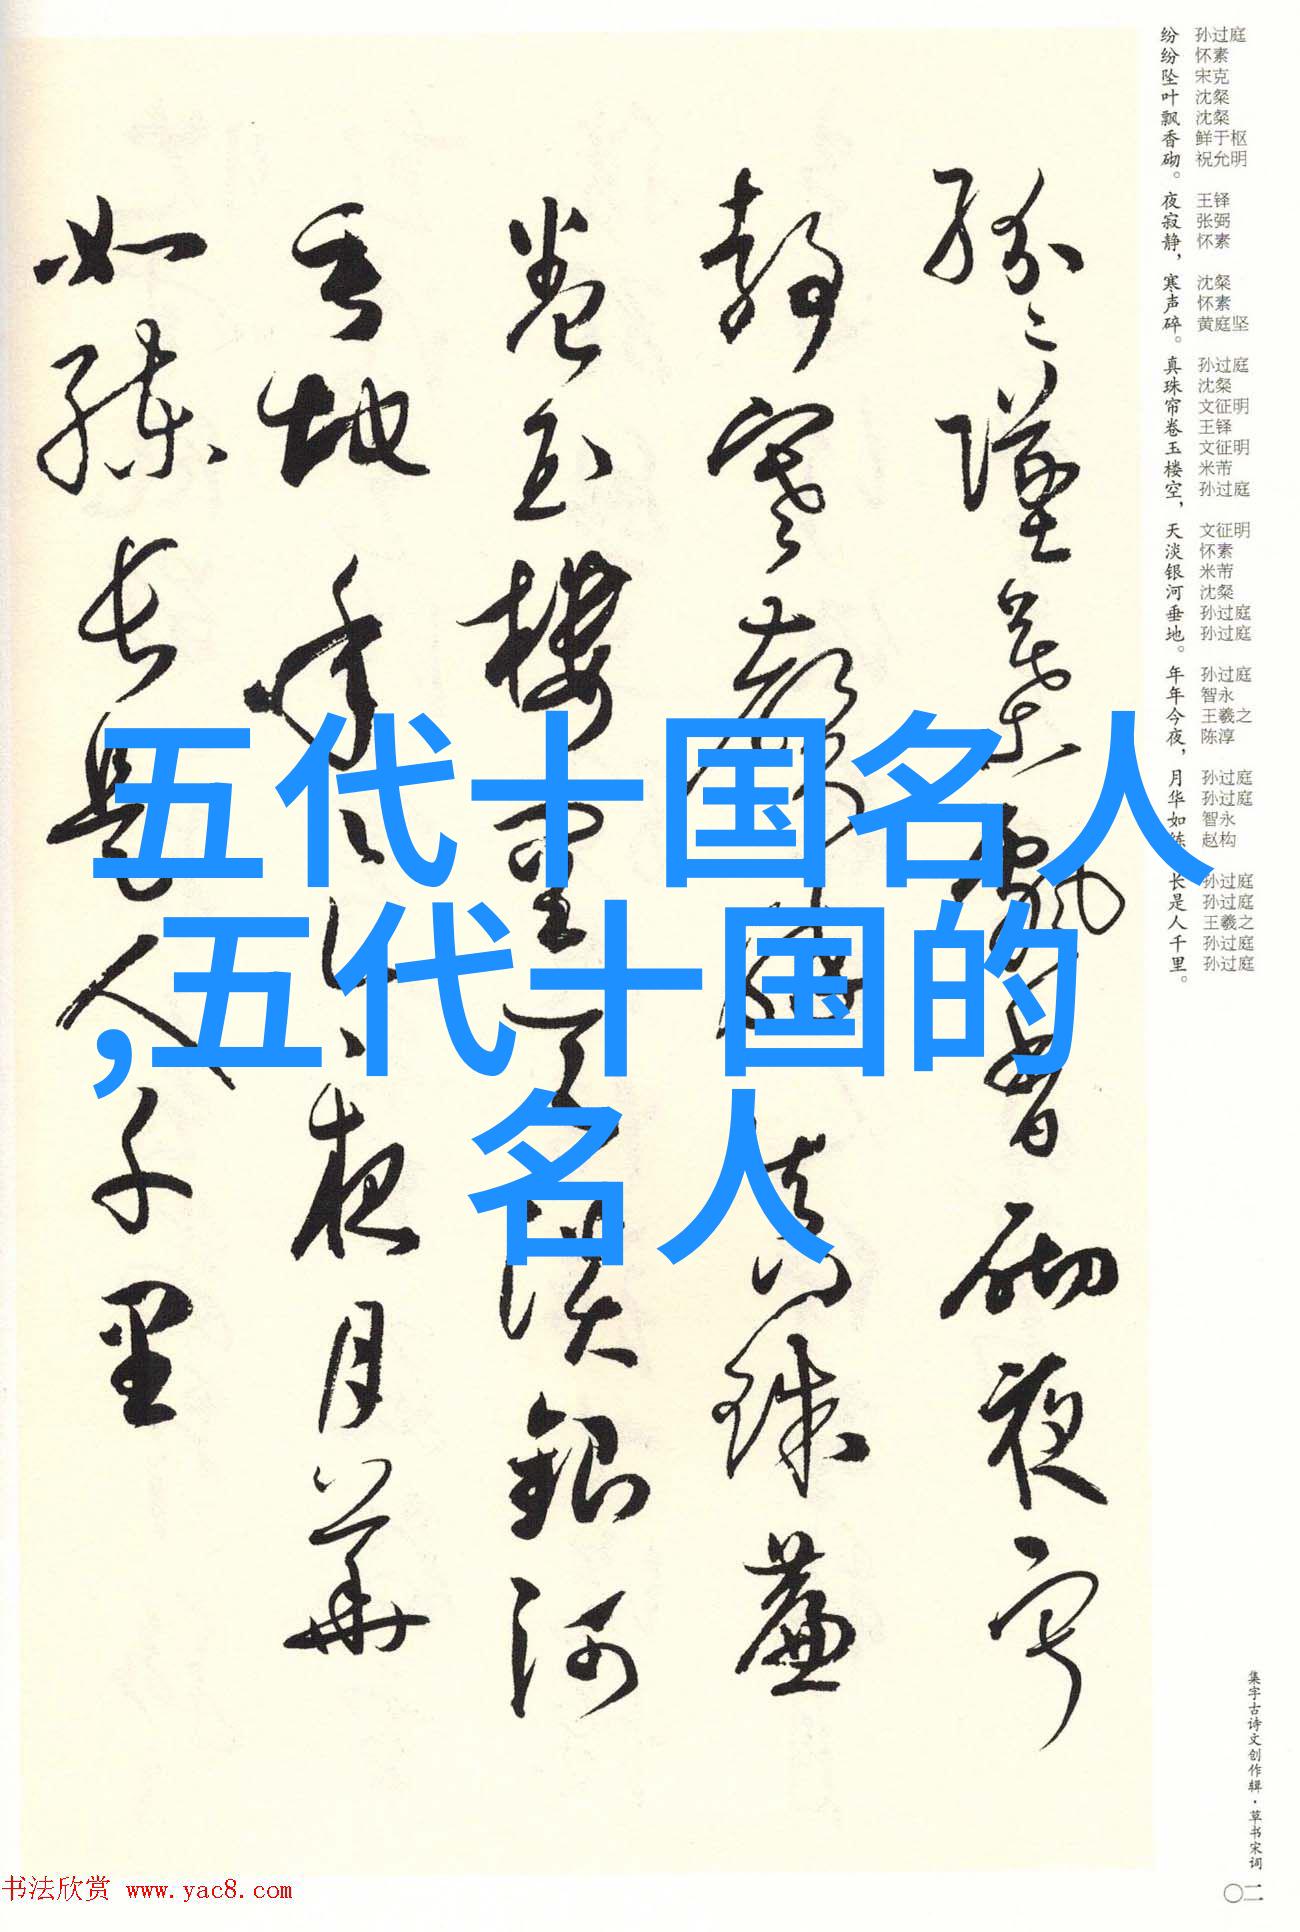 纷纷坠叶飘香砌。夜寂静，寒声碎。真珠帘卷玉楼空，天淡银河垂地。年年今夜，月华如练，长是人千里。
孙过庭
怀素
宋克
沈粲
沈粲
鲜于枢
祝允明
王铎
张弼
怀素
沈粲
怀素
黄庭坚
孙过庭
沈粲
文征明
王铎
文征明
米芾
孙过庭
文征明
怀素
米芾
沈粲
孙过庭
孙过庭
孙过庭
智永
王羲之
陈淳
孙过庭
孙过庭
智永
赵构
孙过庭
孙过庭
王羲之
孙过庭
孙过庭
纷纷坠叶飘香砌夜寂
静寒声碎真珠帘
卷玉楼空天淡银河
垂地年年今夜月华
如练长是人千里
五代十国名人
,五代十国的
名人
集字古诗文创作辑·草书宋词
〇二
书法欣赏 www.yac8.com